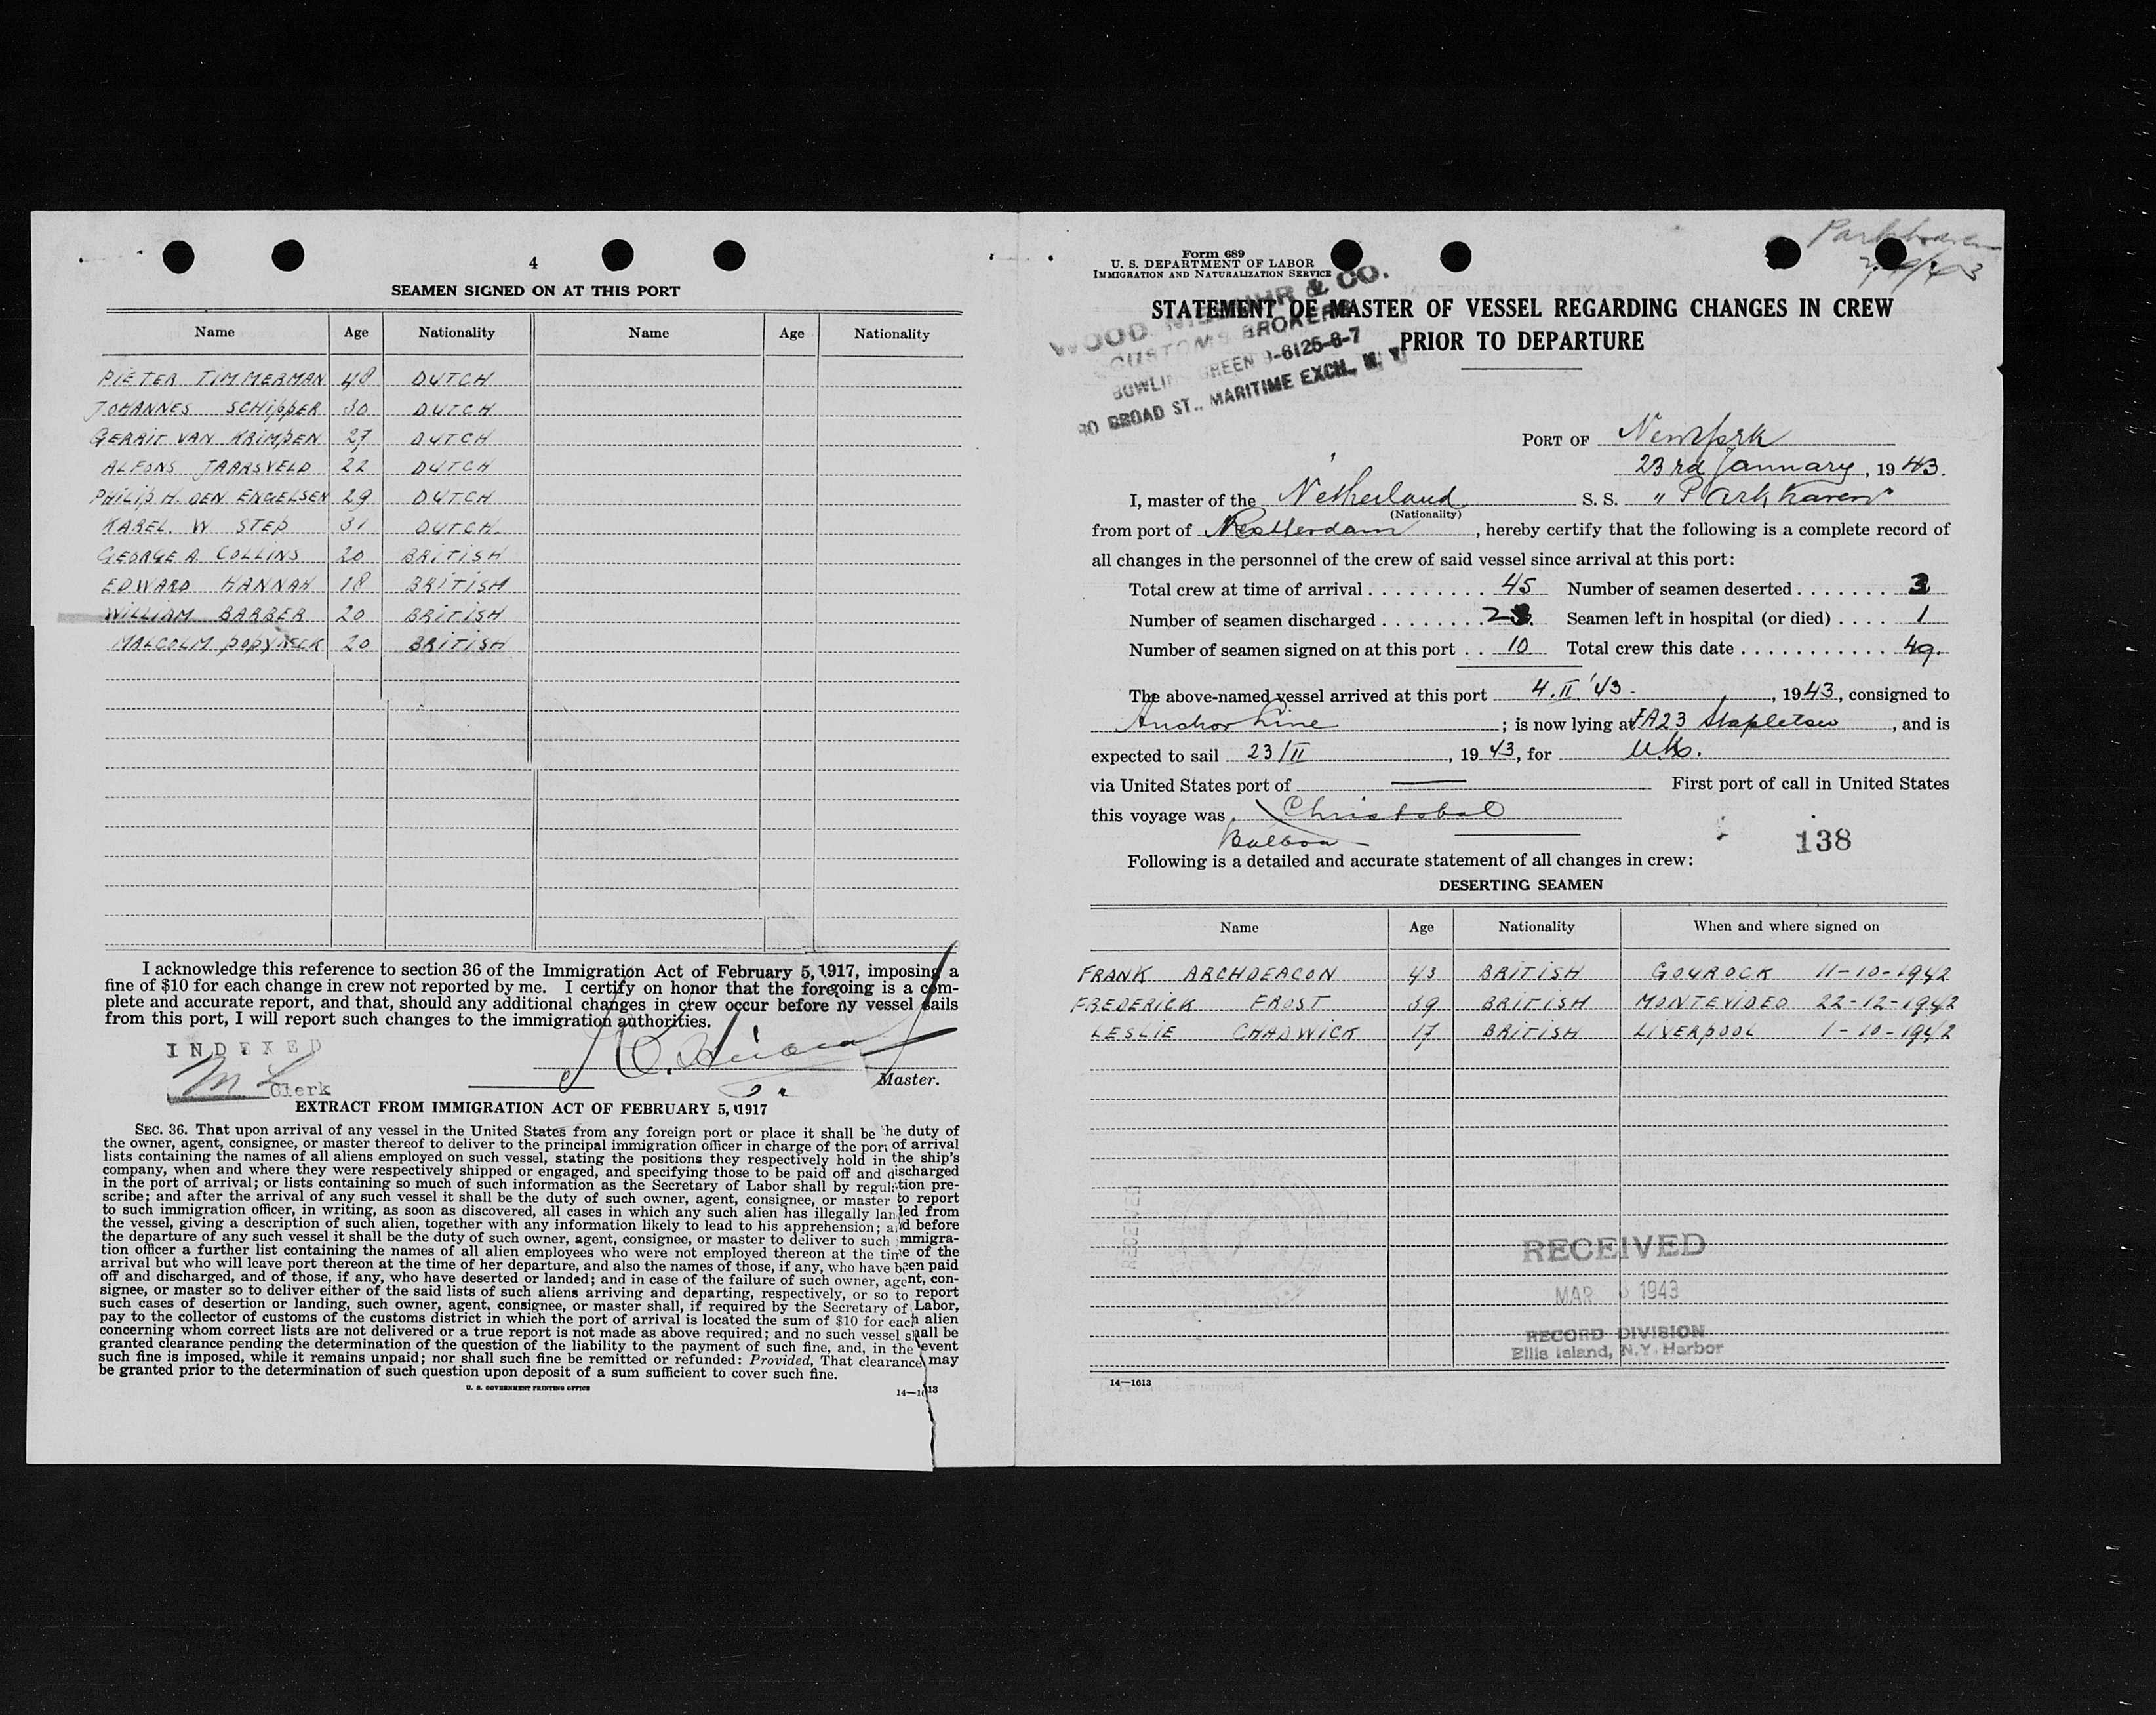 4
SEAMEN SIGNED ON AT THIS PORT
Name Age Nationality Name Age Nationality
PIETER TIMMERMAN 48 DUTCH
JOHANNES SCHIPPER 30 DUTCH
GERRIT VAN KRIMPEN 27 DUTCH
ALFONS JAARSVELD 22 DUTCH
PHILIP H. DEN ENGELSEN 29 DUTCH
KAREL. W STEP 31 DUTCH.
GEORGE A COLLINS 20 BRITISH
EDWARD HANNAH 18 BRITISH
WILLIAM BARBER 20 BRITISH
MALCOLM POPYNECK 20 BRITISH
I acknowledge this reference to section 36 of the Immigration Act of February 5, 1917, imposing a
fine of $10 for each change in crew not reported by me. I certify on honor that the foregoing is a com-
plete and accurate report, and that, should any additional changes in crew occur before my vessel sails
from this port, I will report such changes to the immigration authorities.
INDEXED
Clerk
Master.
EXTRACT FROM IMMIGRATION ACT OF FEBRUARY 5, 1917
SEC. 36. That upon arrival of any vessel in the United States from any foreign port or place it shall be the duty of
the owner, agent, consignee, or master thereof to deliver to the principal immigration officer in charge of the port of arrival
lists containing the names of all aliens employed on such vessel, stating the positions they respectively hold in the ship's
company, when and where they were respectively shipped or engaged, and specifying those to be paid off and discharged
in the port of arrival; or lists containing so much of such information as the Secretary of Labor shall by regulation pre-
scribe; and after the arrival of any such vessel it shall be the duty of such owner, agent, consignee, or master to report
to such immigration officer, in writing, as soon as discovered, all cases in which any such alien has illegally landed from
the vessel, giving a description of such alien, together with any information likely to lead to his apprehension; and before
the departure of any such vessel it shall be the duty of such owner, agent, consignee, or master to deliver to such immigra-
tion officer a further list containing the names of all alien employees who were not employed thereon at the time of the
arrival but who will leave port thereon at the time of her departure, and also the names of those, if any, who have been paid
off and discharged, and of those, if any, who have deserted or landed; and in case of the failure of such owner, agent, con-
signee, or master so to deliver either of the said lists of such aliens arriving and departing, respectively, or so to report
such cases of desertion or landing, such owner, agent, consignee, or master shall, if required by the Secretary of Labor,
pay to the collector of customs of the customs district in which the port of arrival is located the sum of $10 for each alien
concerning whom correct lists are not delivered or a true report is not made as above required; and no such vessel shall be
granted clearance pending the determination of the question of the liability to the payment of such fine, and, in the event
such fine is imposed, while it remains unpaid; nor shall such fine be remitted or refunded: Provided, That clearance may
be granted prior to the determination of such question upon deposit of a sum sufficient to cover such fine.
U. S. GOVERNMENT PRINTING OFFICE 14—1613
Parkhaven
Form 689
U. S. DEPARTMENT OF LABOR
IMMIGRATION AND NATURALIZATION SERVICE
WOOD, & CO.
CUSTOMS BROKERS
BOWLING GREEN 9-6125-6-7
80 BROAD ST., MARITIME EXCH., N. Y.
STATEMENT OF MASTER OF VESSEL REGARDING CHANGES IN CREW
PRIOR TO DEPARTURE
PORT OF New York
23rd January, 1943.
I, master of the Netherland S. S. "Parkhaven"
(Nationality)
from port of Rotterdam, hereby certify that the following is a complete record of
all changes in the personnel of the crew of said vessel since arrival at this port:
Total crew at time of arrival . . . . . . . . . 45 Number of seamen deserted . . . . . . . 3
Number of seamen discharged . . . . . . . 2 Seamen left in hospital (or died) . . . . 1
Number of seamen signed on at this port . . 10 Total crew this date . . . . . . . . . . . 49.
The above-named vessel arrived at this port 4.II.'43 -, 1943, consigned to
Anchor Line; is now lying at FA23 Stapleton, and is
expected to sail 23/II, 1943, for UK.
via United States port of — First port of call in United States
this voyage was Christobal
Balboa
138
Following is a detailed and accurate statement of all changes in crew:
DESERTING SEAMEN
Name Age Nationality When and where signed on
FRANK ARCHDEACON 43 BRITISH GOUROCK 11-10-1942
FREDERICK FROST 39 BRITISH MONTEVIDEO 22-12-1942
LESLIE CHADWICK 17 BRITISH LIVERPOOL 1-10-1942
RECEIVED
MAR 1943
RECORD DIVISION
Ellis Island, N.Y. Harbor
14—1613